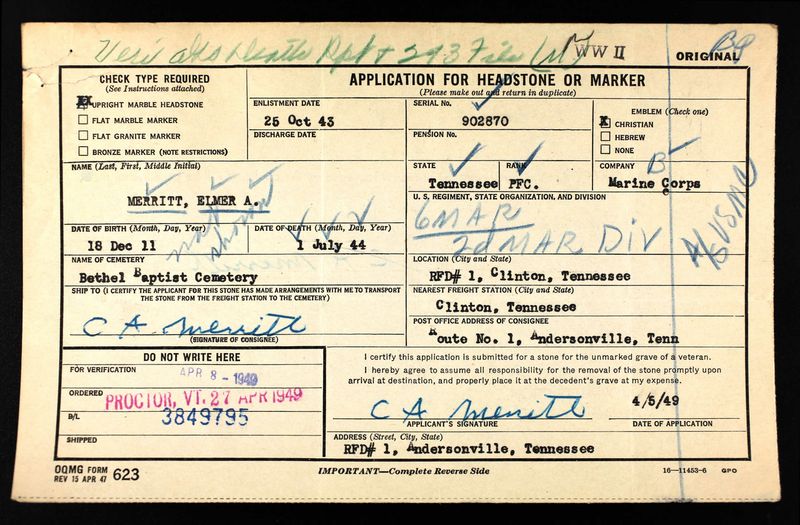 Veri ats Death Rpt + 293 File
WW II
ORIGINAL
CHECK TYPE REQUIRED
(See Instructions attached)
UPRIGHT MARBLE HEADSTONE
FLAT MARBLE MARKER
FLAT GRANITE MARKER
BRONZE MARKER (NOTE RESTRICTIONS)
APPLICATION FOR HEADSTONE OR MARKER
(Please make out and return in duplicate)
ENLISTMENT DATE
25 Oct 43
DISCHARGE DATE
SERIAL No.
902870
PENSION No.
EMBLEM (Check one)
X CHRISTIAN
HEBREW
NONE
NAME (Last, First, Middle Initial)
MERRITT, ELMER A.
STATE
Tennessee
RANK
PFC.
COMPANY
B
Marine Corps
U. S. REGIMENT, STATE ORGANIZATION, AND DIVISION
6 MAR
2d MAR DIV
USMC
DATE OF BIRTH (Month, Day, Year)
18 Dec 11
DATE OF DEATH (Month, Day, Year)
1 July 44
not shown
NAME OF CEMETERY
Bethel Baptist Cemetery
LOCATION (City and State)
RFD# 1, Clinton, Tennessee
SHIP TO (I CERTIFY THE APPLICANT FOR THIS STONE HAS MADE ARRANGEMENTS WITH ME TO TRANSPORT
THE STONE FROM THE FREIGHT STATION TO THE CEMETERY)
C A Merritt
(SIGNATURE OF CONSIGNEE)
NEAREST FREIGHT STATION (City and State)
Clinton, Tennessee
POST OFFICE ADDRESS OF CONSIGNEE
Route No. 1, Andersonville, Tenn
DO NOT WRITE HERE
FOR VERIFICATION
APR 8 - 1949
ORDERED
PROCTOR, VT. 27 APR 1949
B/L
3849795
SHIPPED
I certify this application is submitted for a stone for the unmarked grave of a veteran.
I hereby agree to assume all responsibility for the removal of the stone promptly upon
arrival at destination, and properly place it at the decedent's grave at my expense.
C A Merritt
4/5/49
APPLICANT'S SIGNATURE
DATE OF APPLICATION
ADDRESS (Street, City, State)
RFD# 1, Andersonville, Tennessee
OQMG FORM
REV 15 APR 47
623
IMPORTANT—Complete Reverse Side
16—11453-6 GPO